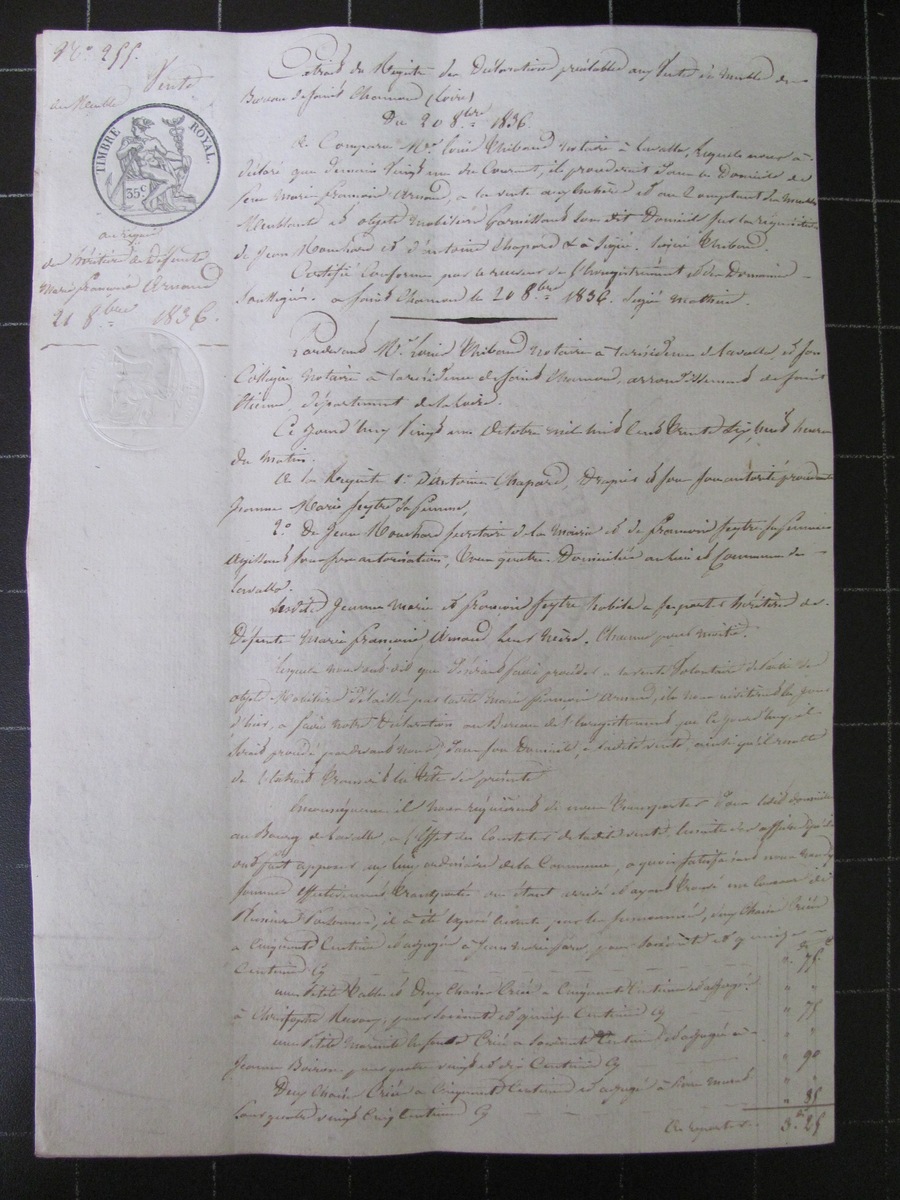 N° 255.
Vente
de Meuble
TIMBRE ROYAL.
35 c
au requis
des héritiers de deffunte
Marie françoise Arnaud
21 8bre 1836.
Extrait du Registre des Déclarations préalables aux Vente de meuble du
Bureau de saint Chamond (Loire)
Du 20 8bre 1836.
A Comparu Me Louis Thibaud Notaire à Lavalla, lequel nous a
déclaré que demain Vingt un du Courant, il procéderait dans le Domicile de
feue Marie françoise Arnaud, a la vente aux Enchères et au Comptant des Meubles
Meublants et objets mobiliers garnissant son dit Domicile sur la réquisition
de Jean Mouchard et d'Antoine Chapard & a Signé. Louis Thibaud.
Certifié Conforme par le receveur de l'Enregistrement et des Domaines
soussigné. a saint Chamond le 20 8bre 1836. Signé Mathieu.
Pardevant Me Louis Thibaud Notaire à la résidence de Lavalla, et son
Collègue Notaire à la résidence de saint Chamond, arrondissement de saint
Etienne, département de la Loire.
Ce jourd'huy Vingt un Octobre mil huit Cent Trente Six, huit heures
du matin.
A la Requête 1° d'Antoine Chapard, et sous son autorité procédante
Jeanne Marie Seytre sa femme,
2° De Jean Mouchard secretaire de la mairie et de françoise Seytre sa femme
agissant sous son autorisation, tous quatre Domiciliés au lieu et Commune de
Lavalla.
Lesdites Jeanne Marie et françoise Seytre habiles a se porter héritières de
Défunte Marie françoise Arnaud leur Mère, Chacune pour moitié.
Lesquels nous ont dit que désirant faire procéder a la vente Volontaire
objets Mobiliers délaissés par ladite Marie françoise Arnaud, ils nous
d'hier, a faire notre Déclaration au Bureau de l'Enregistrement que Ce jourd'huy, il
serait procédé pardevant Nous dans son Domicile, à ladite vente, ainsi qu'il resulte
de l'extrait Transcrit en tête des présentes
En conséquence ils nous requièrent de nous transporter dans ledit domicile
au Bourg de Lavalla, a l'Effet de Constater ladite vente, ensuite des affiches qu'ils
ont fait apposer aux lieux ordinaires de la Commune, a quoi satisfaisant nous nous
sommes effectivement transportés ou étant arrivés et ayant trouvé un Concours de
Plusieurs Personnes, il a été exposé en vente, par les susnommés, deux Chaises Criées
a Cinquante Centimes et adjugées à pour soixante et quinze
Centimes Cy 75
une Petite Table et Deux Chaises Criées a Cinquante Centimes et adjugées
à Christophe pour soixante et quinze Centimes Cy 75
une Petite Marmite Criée a soixante Centimes et adjugée a
Jeanne Boiron, pour quatre vingt et dix Centimes Cy 90
Deux Chaises Criées a Cinquante Centimes et adjugées à
pour quatre vingt Cinq Centimes Cy 85
A reporter 3. 25